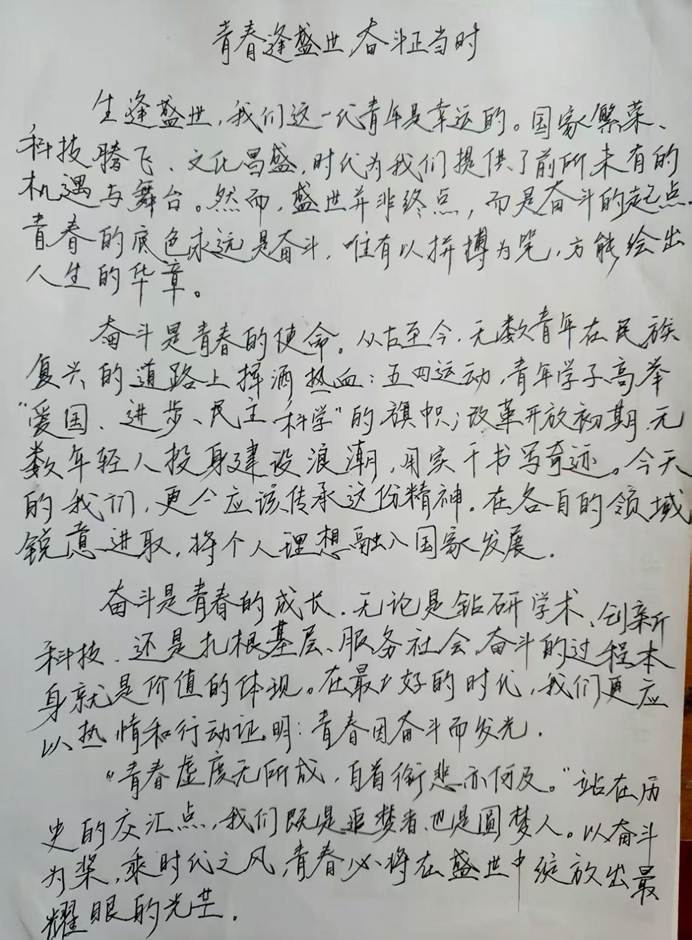 青春逢盛世，奋斗正当时
生逢盛世，我们这一代青年是幸运的。国家繁荣、
科技腾飞、文化昌盛，时代为我们提供了前所未有的
机遇与舞台。然而，盛世并非终点，而是奋斗的起点。
青春的底色永远是奋斗，唯有以拼搏为笔，方能绘出
人生的华章。
奋斗是青春的使命。从古至今，无数青年在民族
复兴的道路上挥洒热血：五四运动，青年学子高举
“爱国、进步、民主、科学”的旗帜；改革开放初期，无
数年轻人投身建设浪潮，用实干书写奇迹。今天
的我们，更应该传承这份精神，在各自的领域
锐意进取，将个人理想融入国家发展．
奋斗是青春的成长．无论是钻研学术、创新
科技，还是扎根基层、服务社会，奋斗的过程本
身就是价值的体现。在最好的时代，我们更应
以热情和行动证明：青春因奋斗而发光．
“青春虚度无所成，白首衔悲亦何及。”站在历
史的交汇点，我们既是追梦者，也是圆梦人。以奋斗
为桨，乘时代之风，青春必将在盛世中绽放出最
耀眼的光芒．